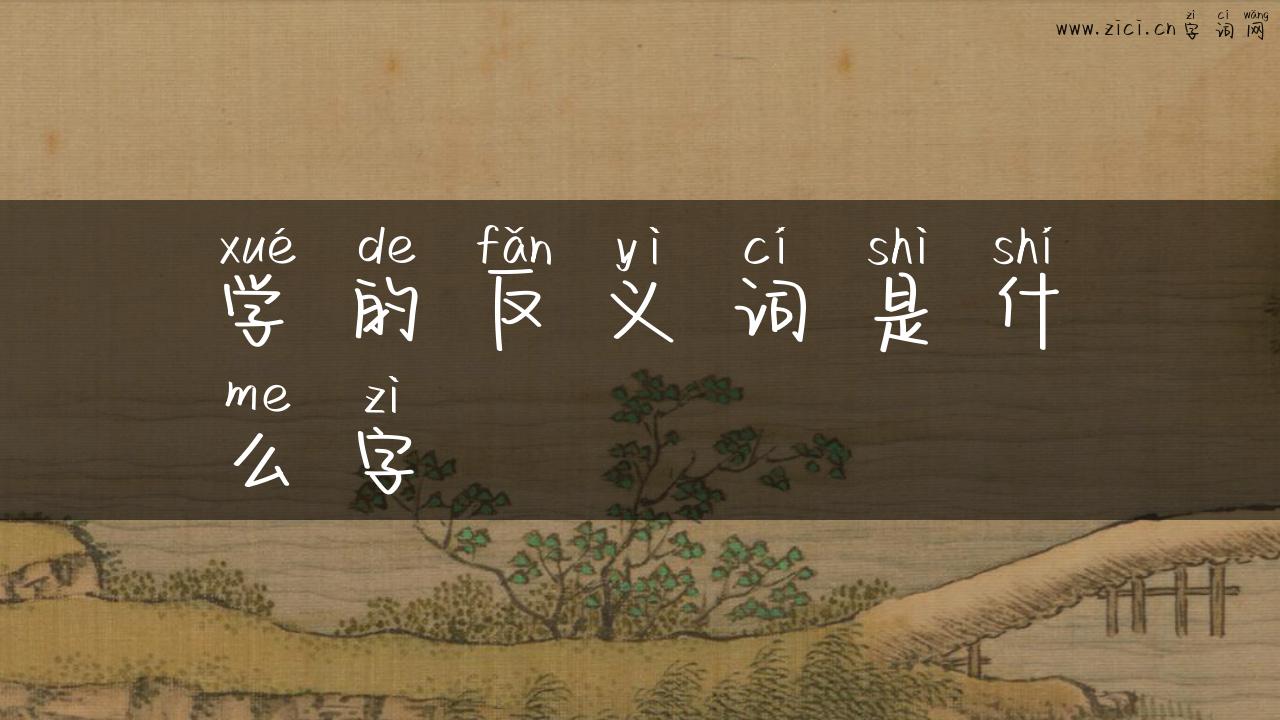 zì cí wǎng
www.zici.cn 字词网
xué de fǎn yì cí shì shí
学的反义词是什
me zì
么字